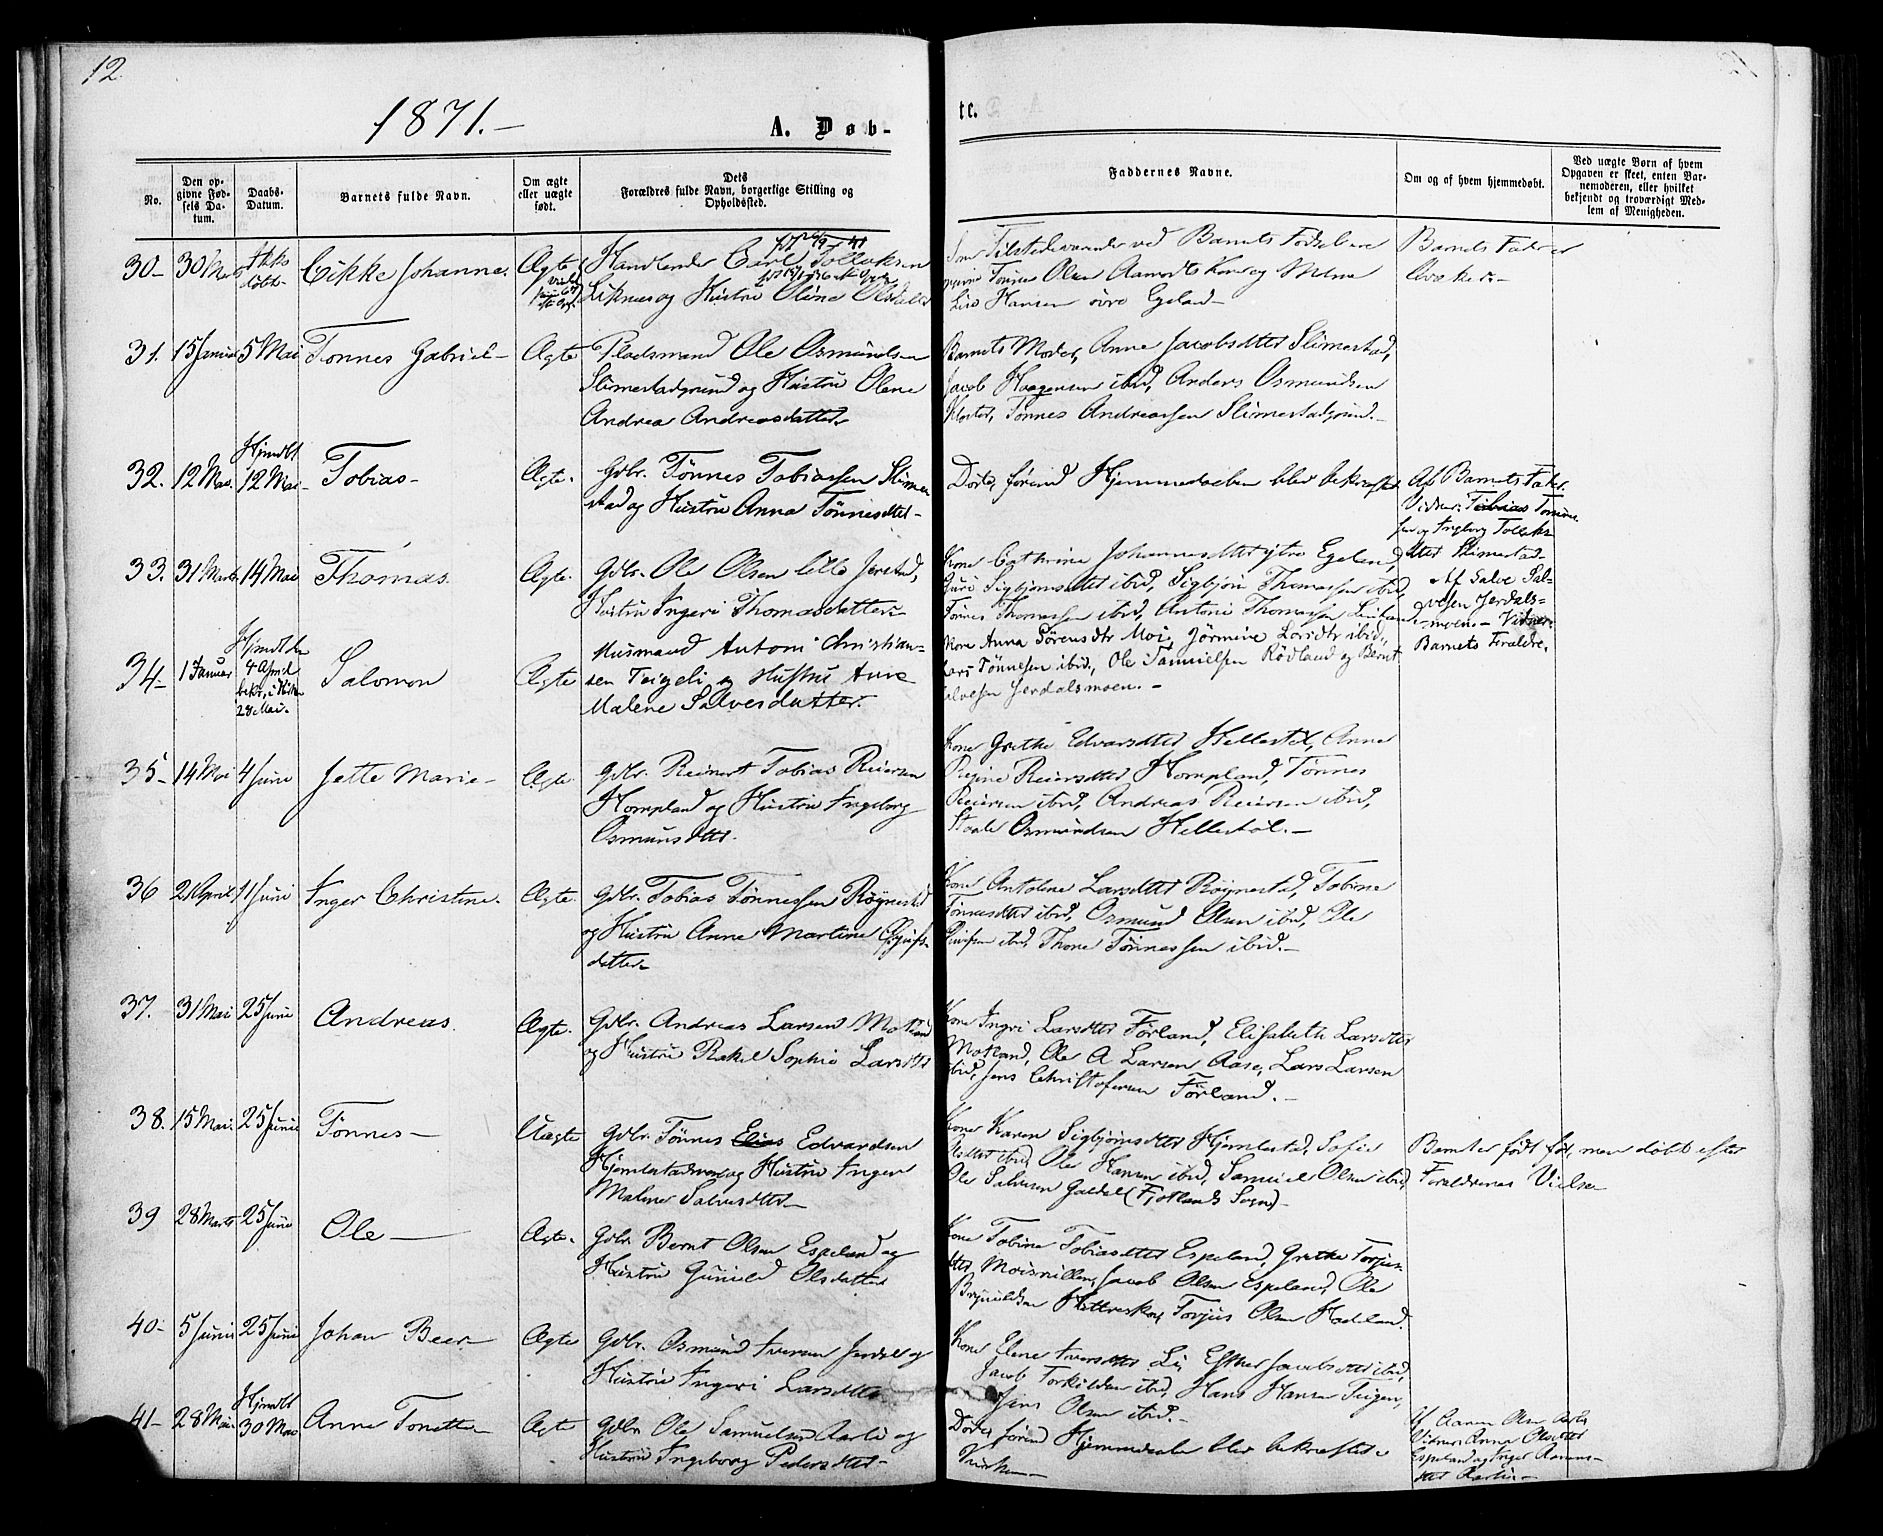 12
1871.-
A. Døb-
te.
No.
Den op-
givne Fød-
sels Da-
tum.
Daabs-
Datum.
Barnets fulde Navn.
Om ægte
eller uægte
født.
Dets
Forældres fulde Navn, borgerlige Stilling og
Opholdssted.
Faddernes Navne.
Om og af hvem hjemmedøbt.
Ved uægte Børn af hvem
Opgaven er skeet, enten Bar-
nemoderen, eller hvilket
bekjendt og troværdigt Med-
lem af Menigheden.
30- 30 Ikke
døbt Cikke Johanne. Ægte Handlende Carl Tollaksen
Liknes og Hustru Oline
Som Tilstedeværende ved Barnets Fødsel ere
Tønnes Olsen Aamodts Kone og
Hansen øvre Egeland-
Barnets Fader er
Qvæker.-
31. 15 Januar 5 Mai Tønnes Gabriel- Ægte Pladsmand Ole Osmundsen
Slimestadgrund og Hustru Olene
Andrea Andreasdatter.
Barnets Moder, Anne Jacobsdtter Slimestad,
Jacob Haagensen ibid, Anders Osmundsen
Kloster, Tønnes Andreassen Slimestadgrund.-
32. 12 Mai. Hjmdbt
12 Mai- Tobias- Ægte. Gdbr. Tønnes Tobiassen Slime
stad og Hustru Anna Tønnesdtter-
Døde, førend Hjemmedaaben blev bekræftet
Af Barnets Fader.
Vidner: Tobias Tønne
sen og Ingborg Tollaks
dtter Slimestad-
33. 31 Marts 14 Mai Thomas. Ægte. Gdbr. Ole Olsen lille Jerstad,
Hustru Ingeri Thomasdatter-
Kone Cathrine Johannesdtter ytre Egeland,
Guri Sigbjørnsdtter ibid, Sigbjørn Thomassen ibid,
Tønnes Thomassen ibid, Antoni Thomassen
34- 1 Januar Hjmdbt den
4 April
bekr. i Kirken
28 Mai. Salomon Ægte Husmand Antoni Christian-
sen Teigeli og Hustru Ane
Malene Salvesdatter.
Kone Anna Sørensdtr Moi, Jørmine Larsdtr ibid.,
Lars Tønnesen ibid., Ole Samuelsen Rødland og Bernt
Salvesen Jerdalsmoen.-
Af Salve Sal-
vesen Jerdals-
moen.- Vidner:
Barnets Forældre.
35- 14 Mai 4 Juni Jette Marie- Ægte Gdbr. Reinert Tobias Reiersen
Hompland og Hustru Ingeborg
Osmunsdtter.
Kone Grethe Edvarsdtter Hellestøl, Anne
Regine Reiersdtter Hompland, Tønnes
Reiersen ibid, Andreas Reiersen ibid,
Staale Osmundsen Hellestøl.-
36 2 April 11 Juni Inger Christine. Ægte. Gdbr. Tobias Tønnessen Røynestad
og Hustru Anne Martine
datter-
Kone Antolene Larsdtter Røynestad, Tobine
Tønnesdtter ibid, Osmund Olsen ibid, Ole
ibid, Thone Tønnessen ibid.-
37. 31 Mai 25 Juni Andreas. Ægte. Gdbr. Andreas Larsen Motland
og Hustru Rakel Sophie Larsdtter
Kone Ingri Larsdtter Førland, Elisabeth Larsdtter
Motland, Ole A Larsen Aase, Lars Larsen
ibid, Jens Christofersen Førland.-
38. 15 Mai. 25 Juni Tønnes- Uægte Gdbr. Tønnes Elias Edvardsen
Hjemlestad og Hustru Inger
Malene Salvesdtter-
Kone Karen Sigbjørnsdtter Hjemlestad, Sofie
ibid, Ole Hansen ibid, Samuel Olsen ibid,
Ole Salvesen Galdal (Fjotlands Sogn)-
Barnet er født før, men døbt efter
Forældrenes Vielse
39 28 Marts 25 Juni Ole- Ægte. Gdbr. Bernt Olsen Espeland og
Hustru Gunild Olsdatter
Kone Tobine Tobiasdtter Espeland, Grethe Torjus-
dtter Moisvillen, Jacob Olsen Espeland, Ole
Torjus Olsen Hadeland.
40- 5 Juni 25 Juni Johan Beer- Ægte Gdbr. Osmund Iversen Jerdal og
Hustru Ingeri Larsdtter
Kone Elene Iversdtter Li, Esther Jacobsdtter ibid,
Jacob Torkildsen ibid, Hans Hansen Teigen,
Jens Olsen ibid.-
41- 28 Mai Hjmdbt
30 Mai Anne Tonette- Ægte Gdbr. Ole Samuelsen og
Hustru Ingeborg Pedersdtter-
Døde, førend Hjemmedaaben blev bekræftet i
Kirken-
Af Aanen Olsen
Vidner: Anna Olsdtter
Espeland og Inger Aanens-
dtter